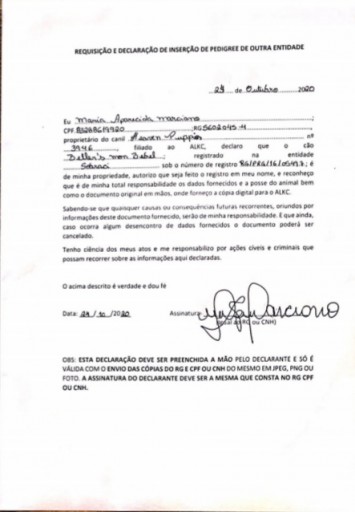 REQUISIÇÃO E DECLARAÇÃO DE INSERÇÃO DE PEDIGREE DE OUTRA ENTIDADE
29 de Outubro 2020
Eu Maria Aparecida Marciano
CPF RG
proprietário do canil Heaven Puppies nº
3946, filiado ao ALKC, declaro que o cão
registrado na entidade
Sobraci sob o número de registro é
de minha propriedade, autorizo que seja feito o registro em meu nome, e reconheço
que é de minha total responsabilidade os dados fornecidos e a posse do animal bem
como o documento original em mãos, onde forneço a cópia digital para o ALKC.
Sabendo-se que quaisquer causas ou consequências futuras recorrentes, oriundos por
informações deste documento fornecido, serão de minha responsabilidade. E que ainda,
caso ocorra algum desencontro de dados fornecidos o documento poderá ser
cancelado.
Tenho ciência dos meus atos e me responsabilizo por ações cíveis e criminais que
possam recorrer sobre as informações aqui declaradas.
O acima descrito é verdade e dou fé
Data: 29/10/2020 Assinatura
(igual ao RG ou CNH)
OBS: ESTA DECLARAÇÃO DEVE SER PREENCHIDA A MÃO PELO DECLARANTE E SÓ É
VÁLIDA COM O ENVIO DAS CÓPIAS DO RG E CPF OU CNH DO MESMO EM JPEG, PNG OU
FOTO. A ASSINATURA DO DECLARANTE DEVE SER A MESMA QUE CONSTA NO RG CPF
OU CNH.